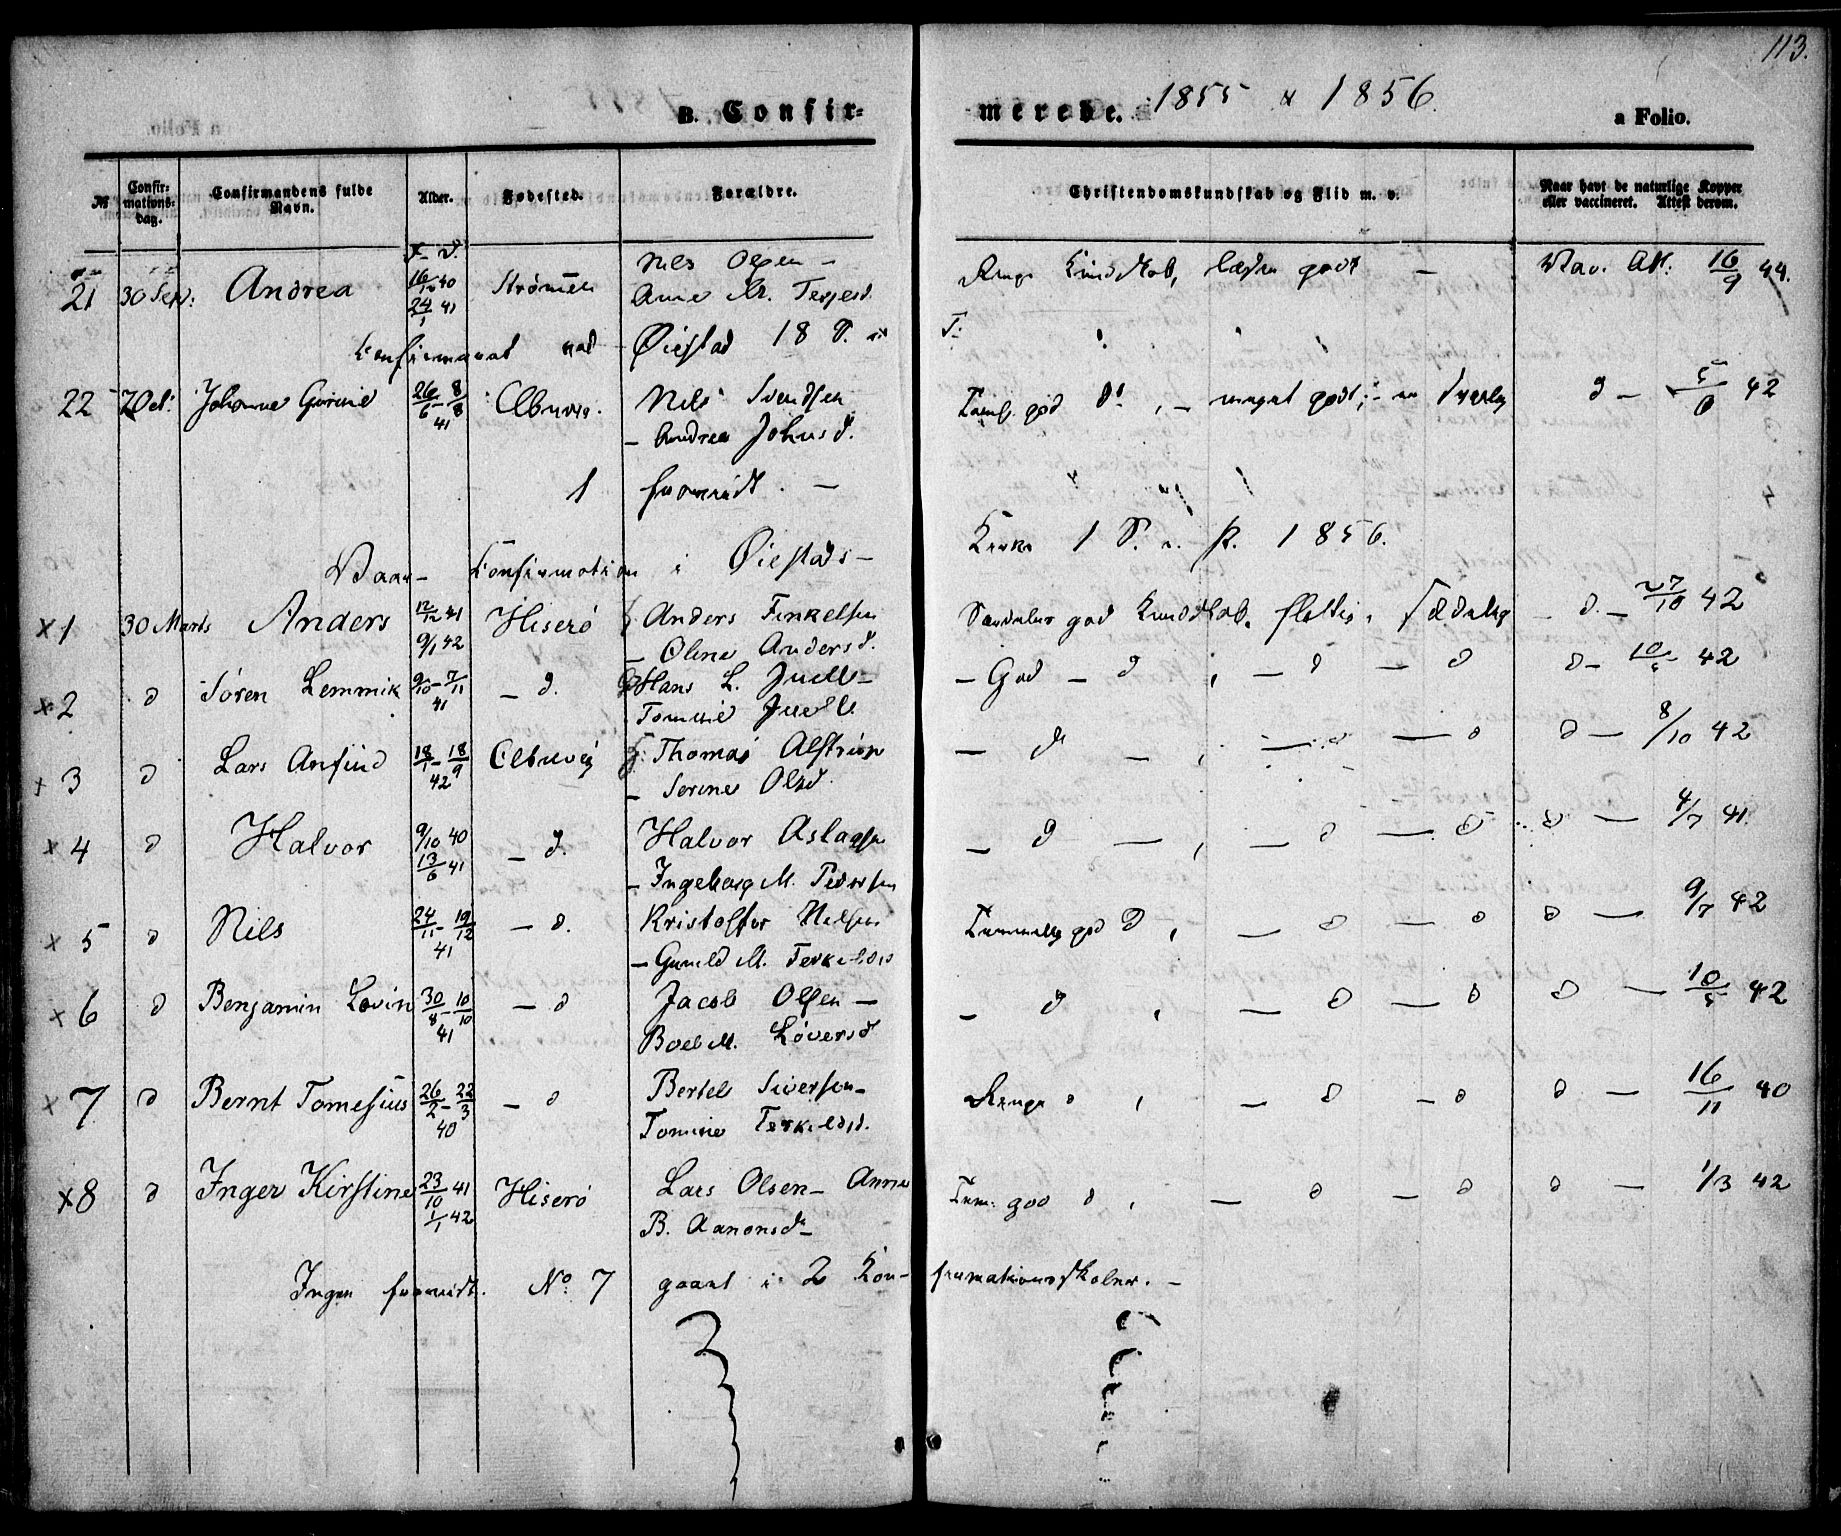 113.
B. Confir-merede. 1855 & 1856. a Folio.
№ Confir-mations-dag. Confirmandens fulde Navn. Alder. Fødested. Forældre. Christendomskundskab og Flid m. v. Naar havt de naturlige Kopper eller vaccineret. Attest derom.
F. D.
21 30 Sep: Andrea 16/12 40 24/1 41 Strømen Nils Olsen – Ringe Kundskab, læser godt – Vav. Att: 16/9 44.
Ane M. Terjesd.
Confirmeret ved Øiestad 18 S.
22 7 Oct: Johanne 26/6 – 8/8 41 Nils Svendsen Teml. god d°, – meget godt, d – 42
– Andrea Johnsd.
1 fremmidt. –
Vaar – Confirmation i Øiestads – Kirke 1 S. e. P. 1856.
x 1 30 Marts Anders 12/12 41 9/1 42 Hiserø Anders Finkelsen Særdeles god Kundskab, flittig, sædelig d. – 27/10 42
– Oline Andersd.
x 2 d Søren Lemmik 9/10 – 7/11 41 – d. Hans L. Juell – – God – d , – d – d d – 10/5 42
Tomine Juell
x 3 d Lars Anfind 18/1 – 18/9 42 Thomas Alstrup – d – , – – d d – 8/10 42
– Serine Olsd.
x 4 d Halvor 9/10 40 13/6 41 – d. Halvor Aslaksen – d – , – d – d d – 4/7 41
– Ingeborg M. Pedersen
x 5 d Nils 24/11 – 19/12 41 – d. Kristoffer Nielsen Temmelig god d , – d – d d – 9/7 42
– Gunild M. Terkelsd
x 6 d Benjamin Lovin 30/8 – 10/10 41 – d Jacob Olsen – – d , – d – d d – 10/5 42
Boel M. Løversd
x 7 d Bernt Tomesius 26/2 – 22/3 40 – d Bertel Siversen – Ringe d , – d – d d – 16/11 40
Tomine Terkeldsd.
x 8 d Inger Kirstine 23/10 41 1/1 42 Hiserø Lars Olsen – Anne Tem: god d , – d – d d – 1/3 42
B. Aanonsd –
Ingen fremmidt. No. 7 gaaet i 2 Konfirmationsskoler. –